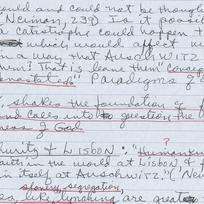 ould and could not be though
(Neiman, 239) Is it possib
a catastrophe could happen t
which would affect u
in a way that AUSCHWITZ
them? That is, leave them "concep
devastated." Paradigms of
, shakes the foundation of f
and calls into question the
ness of God
& LISBON: "Humank
faith in the world at LISBON & f
in itself at AUSCHWITZ." (Nei
slavery, segregation,
like lynching are